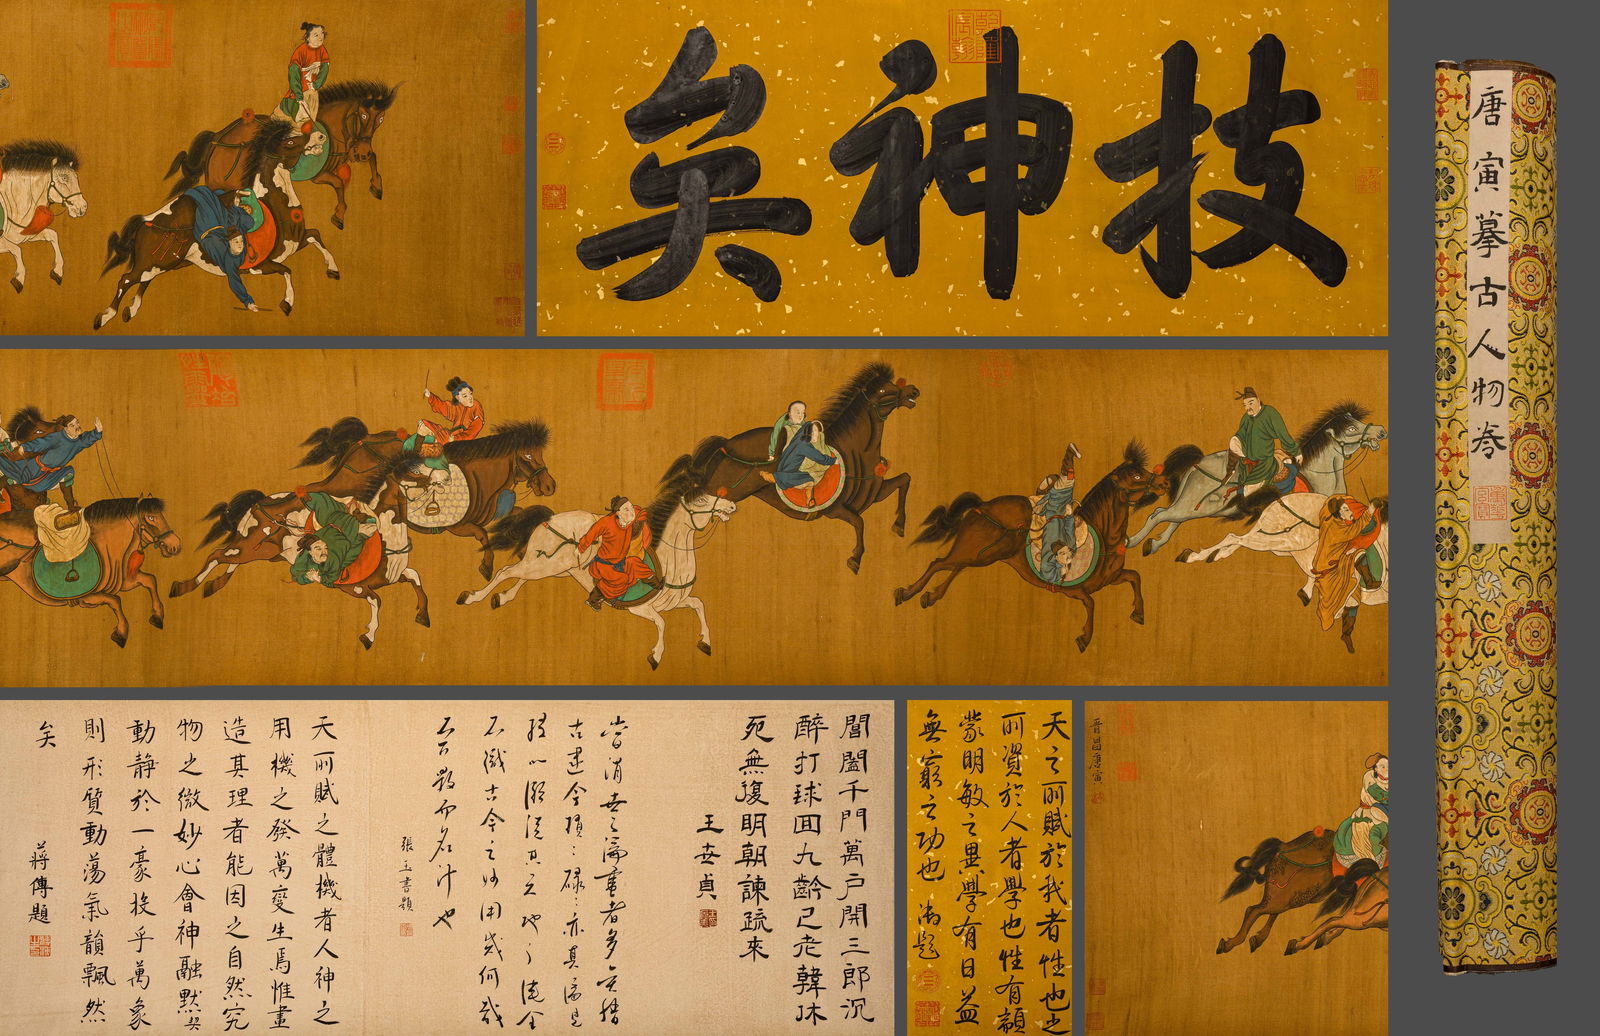 技神矣
唐寅摹古人物卷
晋昌唐寅
天之所賦於我者性也之
所資於人者學也性有顓
蒙明敏之異學有日益
無窮之功也 御題
閶闔千門萬戶開三郎沉
醉打球囬九齡已老韓休
死無復明朝諫疏來
王世貞
嘗謂世之論畫者多矣稽
古逮今
古今之妙用
而名計也
張玉書題
天所賦之體機者人神之
用機之發萬變生焉惟畫
造其理者能因之自然究
物之微妙心會神融默契
動靜於一豪投乎萬象
則形質動蕩氣韻飄然
矣
蔣傳題